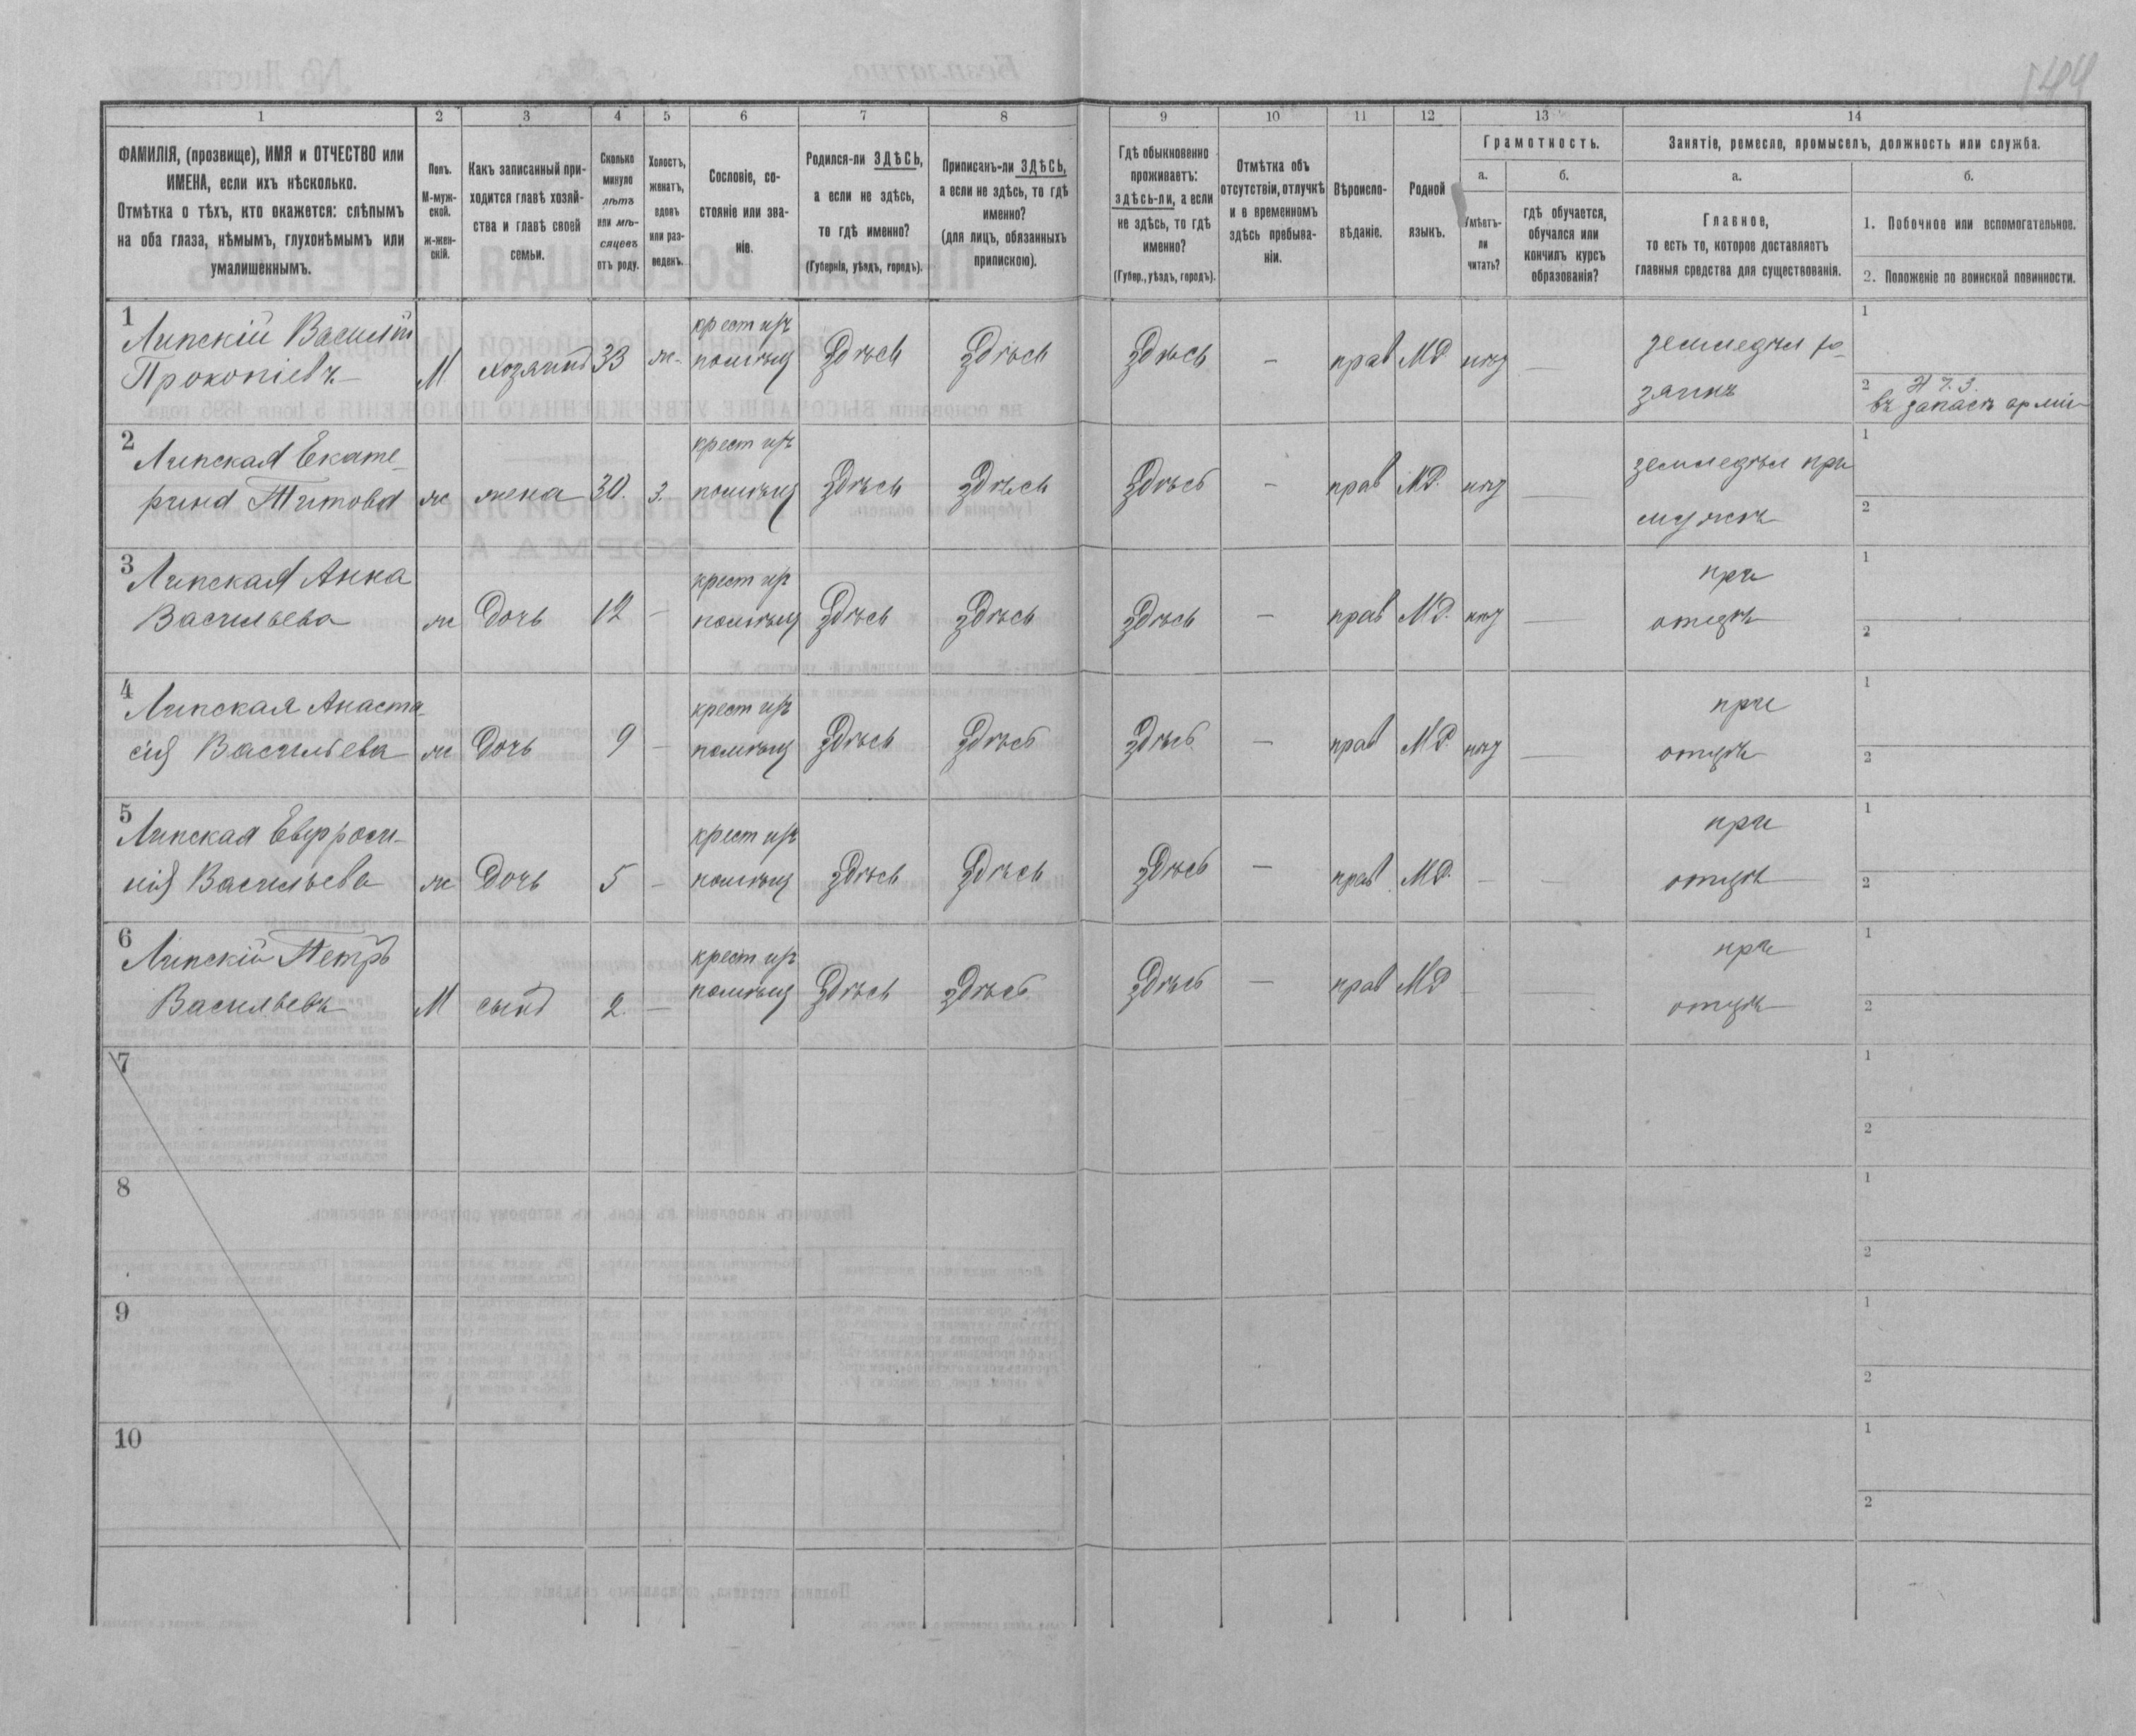 144
1 2 3 4 5 6 7 8 9 10 11 12 13 14
ФАМИЛІЯ, (прозвище), ИМЯ и ОТЧЕСТВО или
ИМЕНА, если ихъ нѣсколько.
Отмѣтка о тѣхъ, кто окажется: слѣпымъ
на оба глаза, нѣмымъ, глухонѣмымъ или
умалишеннымъ.
Полъ.
М-муж-
ской.
ж-жен-
скій.
Какъ записанный при-
ходится главѣ хозяй-
ства и главѣ своей
семьи.
Сколько
минуло
лѣтъ
или мѣ-
сяцевъ
отъ роду.
Холостъ,
женатъ,
вдовъ
или раз-
веденъ.
Сословіе, со-
стояніе или зва-
ніе.
Родился-ли ЗДѢСЬ,
а если не здѣсь,
то гдѣ именно?
(Губернія, уѣздъ, городъ).
Приписанъ-ли ЗДѢСЬ,
а если не здѣсь, то гдѣ
именно?
(для лицъ, обязанныхъ
припискою).
Гдѣ обыкновенно
проживаетъ:
здѣсь-ли, а если
не здѣсь, то гдѣ
именно?
(Губер., уѣздъ, городъ).
Отмѣтка объ
отсутствіи, отлучкѣ
и о временномъ
здѣсь пребыва-
ніи.
Вѣроиспо-
вѣданіе.
Родной
языкъ.
Грамотность.
а.
Умѣетъ-
ли
читать?
б.
гдѣ обучается,
обучался или
кончилъ курсъ
образованія?
Занятіе, ремесло, промыселъ, должность или служба.
а.
Главное,
то есть то, которое доставляетъ
главныя средства для существованія.
б.
1. Побочное или вспомогательное.
2. Положеніе по воинской повинности.
1
Липскій Василій крест изъ земледѣл хо- 1
Прокопіевъ М хозяинъ 33 ж. помѣщ Здѣсь Здѣсь Здѣсь — прав МР нѣт — зяинъ 2 въ запасѣ арміи
2
Липская Екате- крест изъ земледѣл при 1
рина Титова ж жена 30. з. помѣщ Здѣсь Здѣсь Здѣсь — прав МР. нѣт — мужѣ 2
3
Липская Анна крест из при 1
Васильева ж Дочь 12 — помѣщ Здѣсь Здѣсь Здѣсь — прав МР. нѣт — отцѣ 2
4
Липская Анаста- крест изъ при 1
сія Васильева ж Дочь 9 — помѣщ Здѣсь Здѣсь Здѣсь — прав МР. нѣт — отцѣ 2
5
Липская Евфроси- крест изъ при 1
нія Васильева ж Дочь 5 — помѣщ Здѣсь Здѣсь Здѣсь — прав МР. — — отцѣ 2
6
Липскій Петръ крест из при 1
Васильевъ М сынъ 2. — помѣщ Здѣсь Здѣсь Здѣсь — прав МР — — отцѣ 2
7 1
2
8 1
2
9 1
2
10 1
2